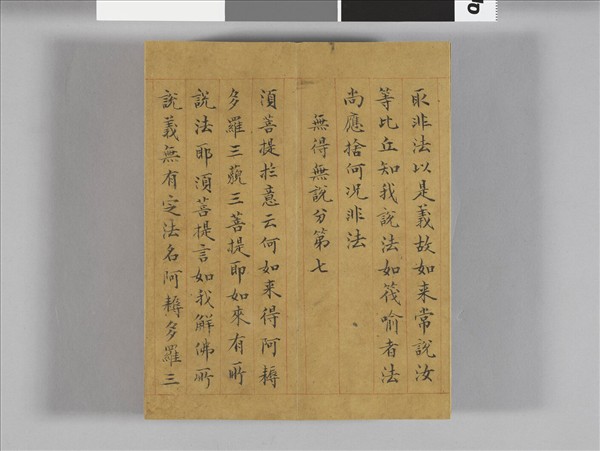 取非法以是義故如来常說汝
等比丘知我說法如筏喻者法
尚應捨何況非法
無得無說分第七
須菩提扵意云何如来得阿耨
多羅三藐三菩提耶如來有所
說法耶須菩提言如我解佛所
說義無有定法名阿耨多羅三